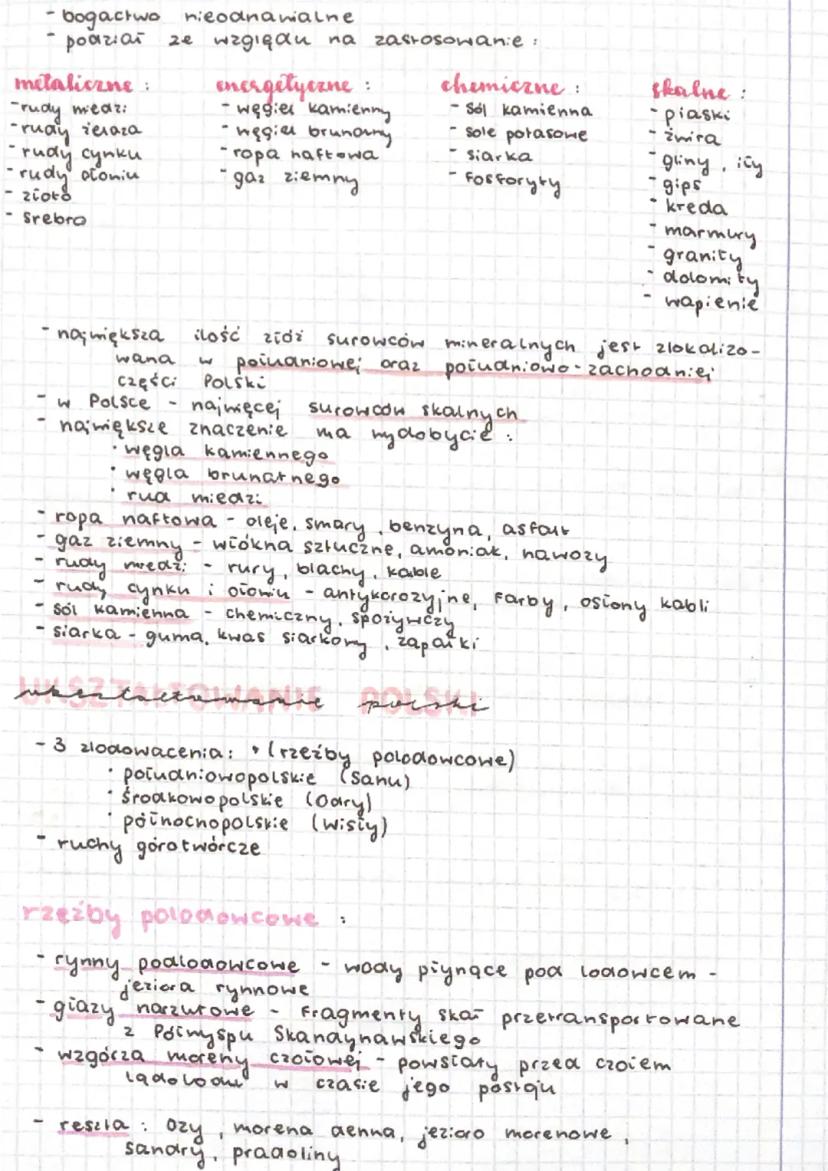 - bogactwo nieodnawialne
- podział ze względu na zastosowanie:
metaliczne: energetyczne: chemiczne: skalne:
- rudy miedzi - węgiel kamienny - sól kamienna - piaski
- rudy żelaza - węgiel brunatny - sole potasowe - żwira
- rudy cynku - ropa naftowa - siarka - gliny, iły
- rudy ołowiu - gaz ziemny - fosforyty - gips
- złoto - kreda
- srebro - marmury
- granity
- dolomity
- wapienie
- największa ilość złóż surowców mineralnych jest zlokalizo-
wana w południowej oraz południowo-zachodniej
części Polski
- w Polsce - najwięcej surowców skalnych
- największe znaczenie ma wydobycie:
· węgla kamiennego
· węgla brunatnego
· rud miedzi
- ropa naftowa - oleje, smary, benzyna, asfalt
- gaz ziemny - włókna sztuczne, amoniak, nawozy
- rudy miedzi - rury, blachy, kable
- rudy cynku i ołowiu - antykorozyjne, farby, osłony kabli
- sól kamienna - chemiczny, spożywczy
- siarka - guma, kwas siarkowy, zapałki
UKSZTAŁTOWANIE POLSKI
ukształtowanie polski
- 3 zlodowacenia: * (rzeźby polodowcowe)
· południowopolskie (Sanu)
· środkowopolskie (Odry)
· północnopolskie (Wisły)
- ruchy górotwórcze
rzeźby polodowcowe:
- rynny podlodowcowe - wody płynące pod lodowcem -
jeziora rynnowe
- głazy narzutowe - fragmenty skał przetransportowane
z Półwyspu Skandynawskiego
- wzgórza moreny czołowej - powstały przed czołem
lądolodu w czasie jego postoju
- reszta: ozy, morena denna, jezioro morenowe,
sandry, pradoliny